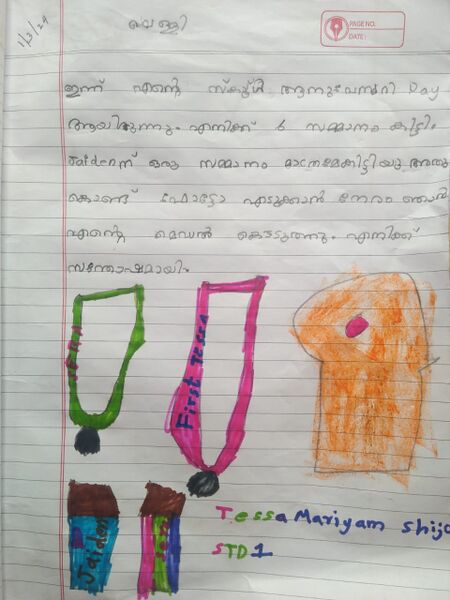 1/3/24
വെള്ളി
PAGE NO.
DATE:
ഇന്ന് എന്റെ സ്കൂൾ ആനുവേഴ്സറി Day
ആയിരുന്നു. എനിക്ക് 6 സമ്മാനം കിട്ടി.
Jaidenന് ഒരു സമ്മാനം മാത്രമേകിട്ടിയു അതു
കൊണ്ട് ഫോട്ടോ എടുക്കാൻ നേരം ഞാൻ
എന്റെ മെഡൽ കൊടുത്തു. എനിക്ക്
സന്തോഷമായി.
First Tessa
Jaiden
Tessa Mariyam Shijo
STD 1